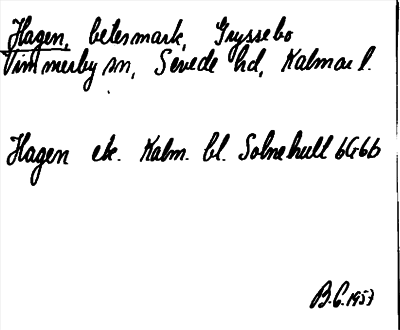 Hagen, betesmark, Gryssebo
Vimmerby sn, Sevede hd, Kalmar l.
Hagen ek. Kalm. bl. Solnehult 6G6b
B.G. 1957